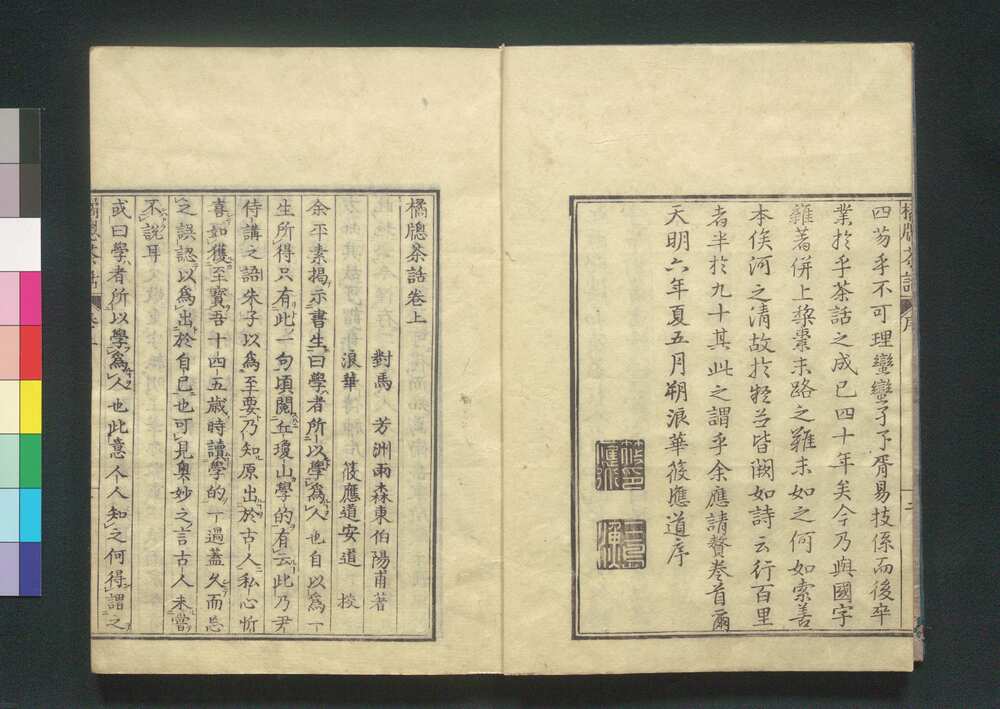 橘牎茶話 序
四芴乎不可理蠻蠻了下胥易技係而後卒
業於乎茶話之成已四十年矣今乃與國字
雜著併上棃棗末路之難未如之何如索善
本俟河之清故於疑㒵皆闕如詩云行百里
者半於九十其此之謂乎余應請贅卷首爾
天明六年夏五月朔浪華筱應道序
橘牎茶話卷上
對馬 芳洲雨森東伯陽甫著
浪華 筱應道安道 校
余平素揭示書生曰學者所以學爲人也自以爲一
生所得只有此一句頃閱丘瓊山學的有云此乃尹
侍講之語朱子以爲至要乃知原出於古人私心忻
喜如獲至寶吾十四五歲時讀學的一過蓋久而忘
之誤認以爲出於自己也可見奧妙之言古人未嘗
不說耳
或曰學者所以學爲人也此意个人知之何得謂之
橘牎茶話